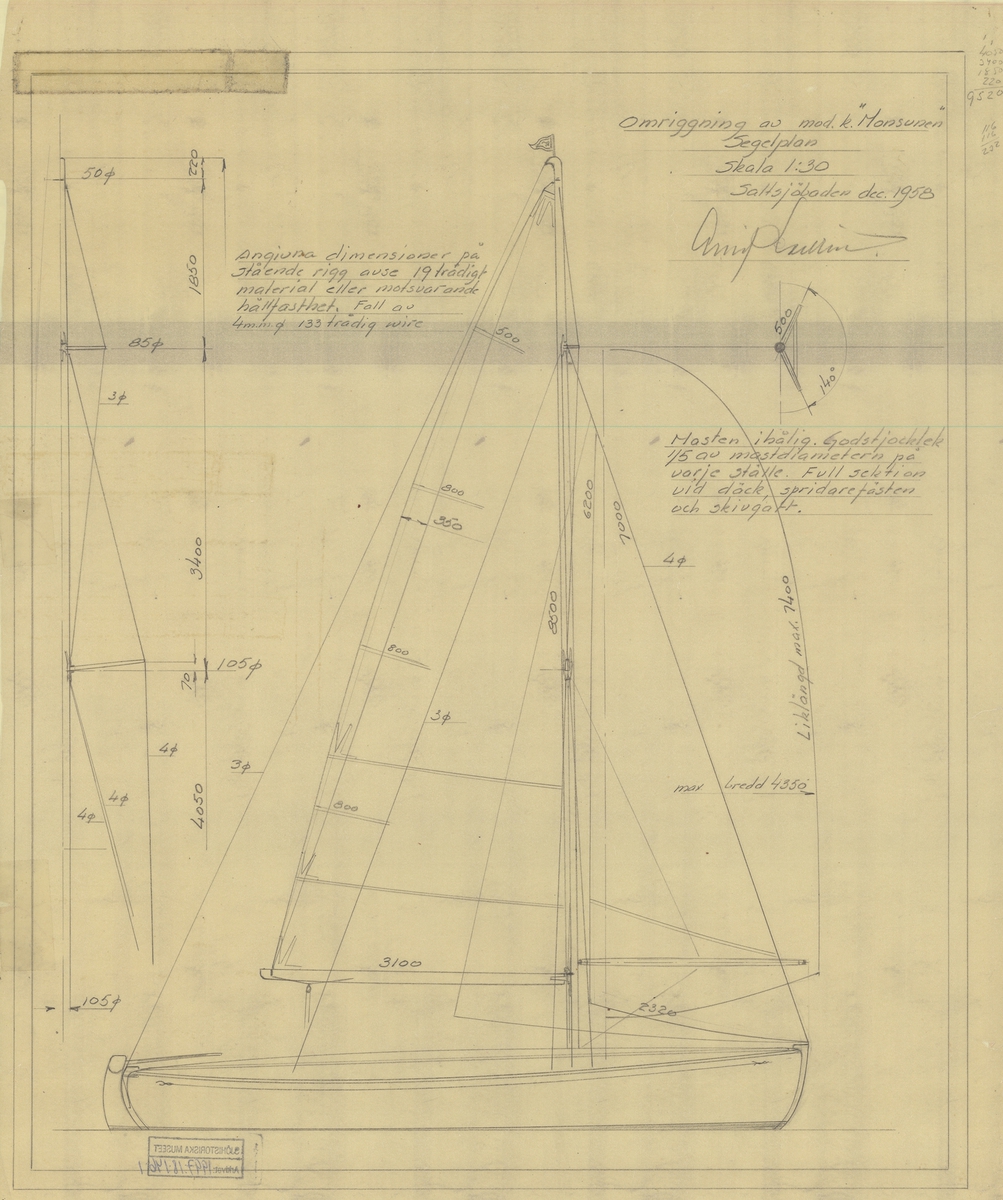 Omriggning av mod. k. "Monsunen"
Segelplan
Skala 1:30
Saltsjöbaden dec. 1958
Angivna dimensioner på
stående rigg avse 19 trådigt
material eller motsvarande
hållfasthet. Fall av
4 m.m.φ 133 trådig wire
Masten ihålig. Godstjocklek
1/5 av mastdiametern på
varje ställe. Full sektion
vid däck, spridarefästen
och skivgatt.
50φ
220
1850
85φ
3φ
3400
105φ
70
4φ
4φ
4φ
4050
105φ
3φ
500
800
350
800
3φ
800
3100
8500
6200
7000
4φ
500
140°
Liklängd max. 7400
max bredd 4350
2320
4050
3400
1850
220
9520
SJÖHISTORISKA MUSEET